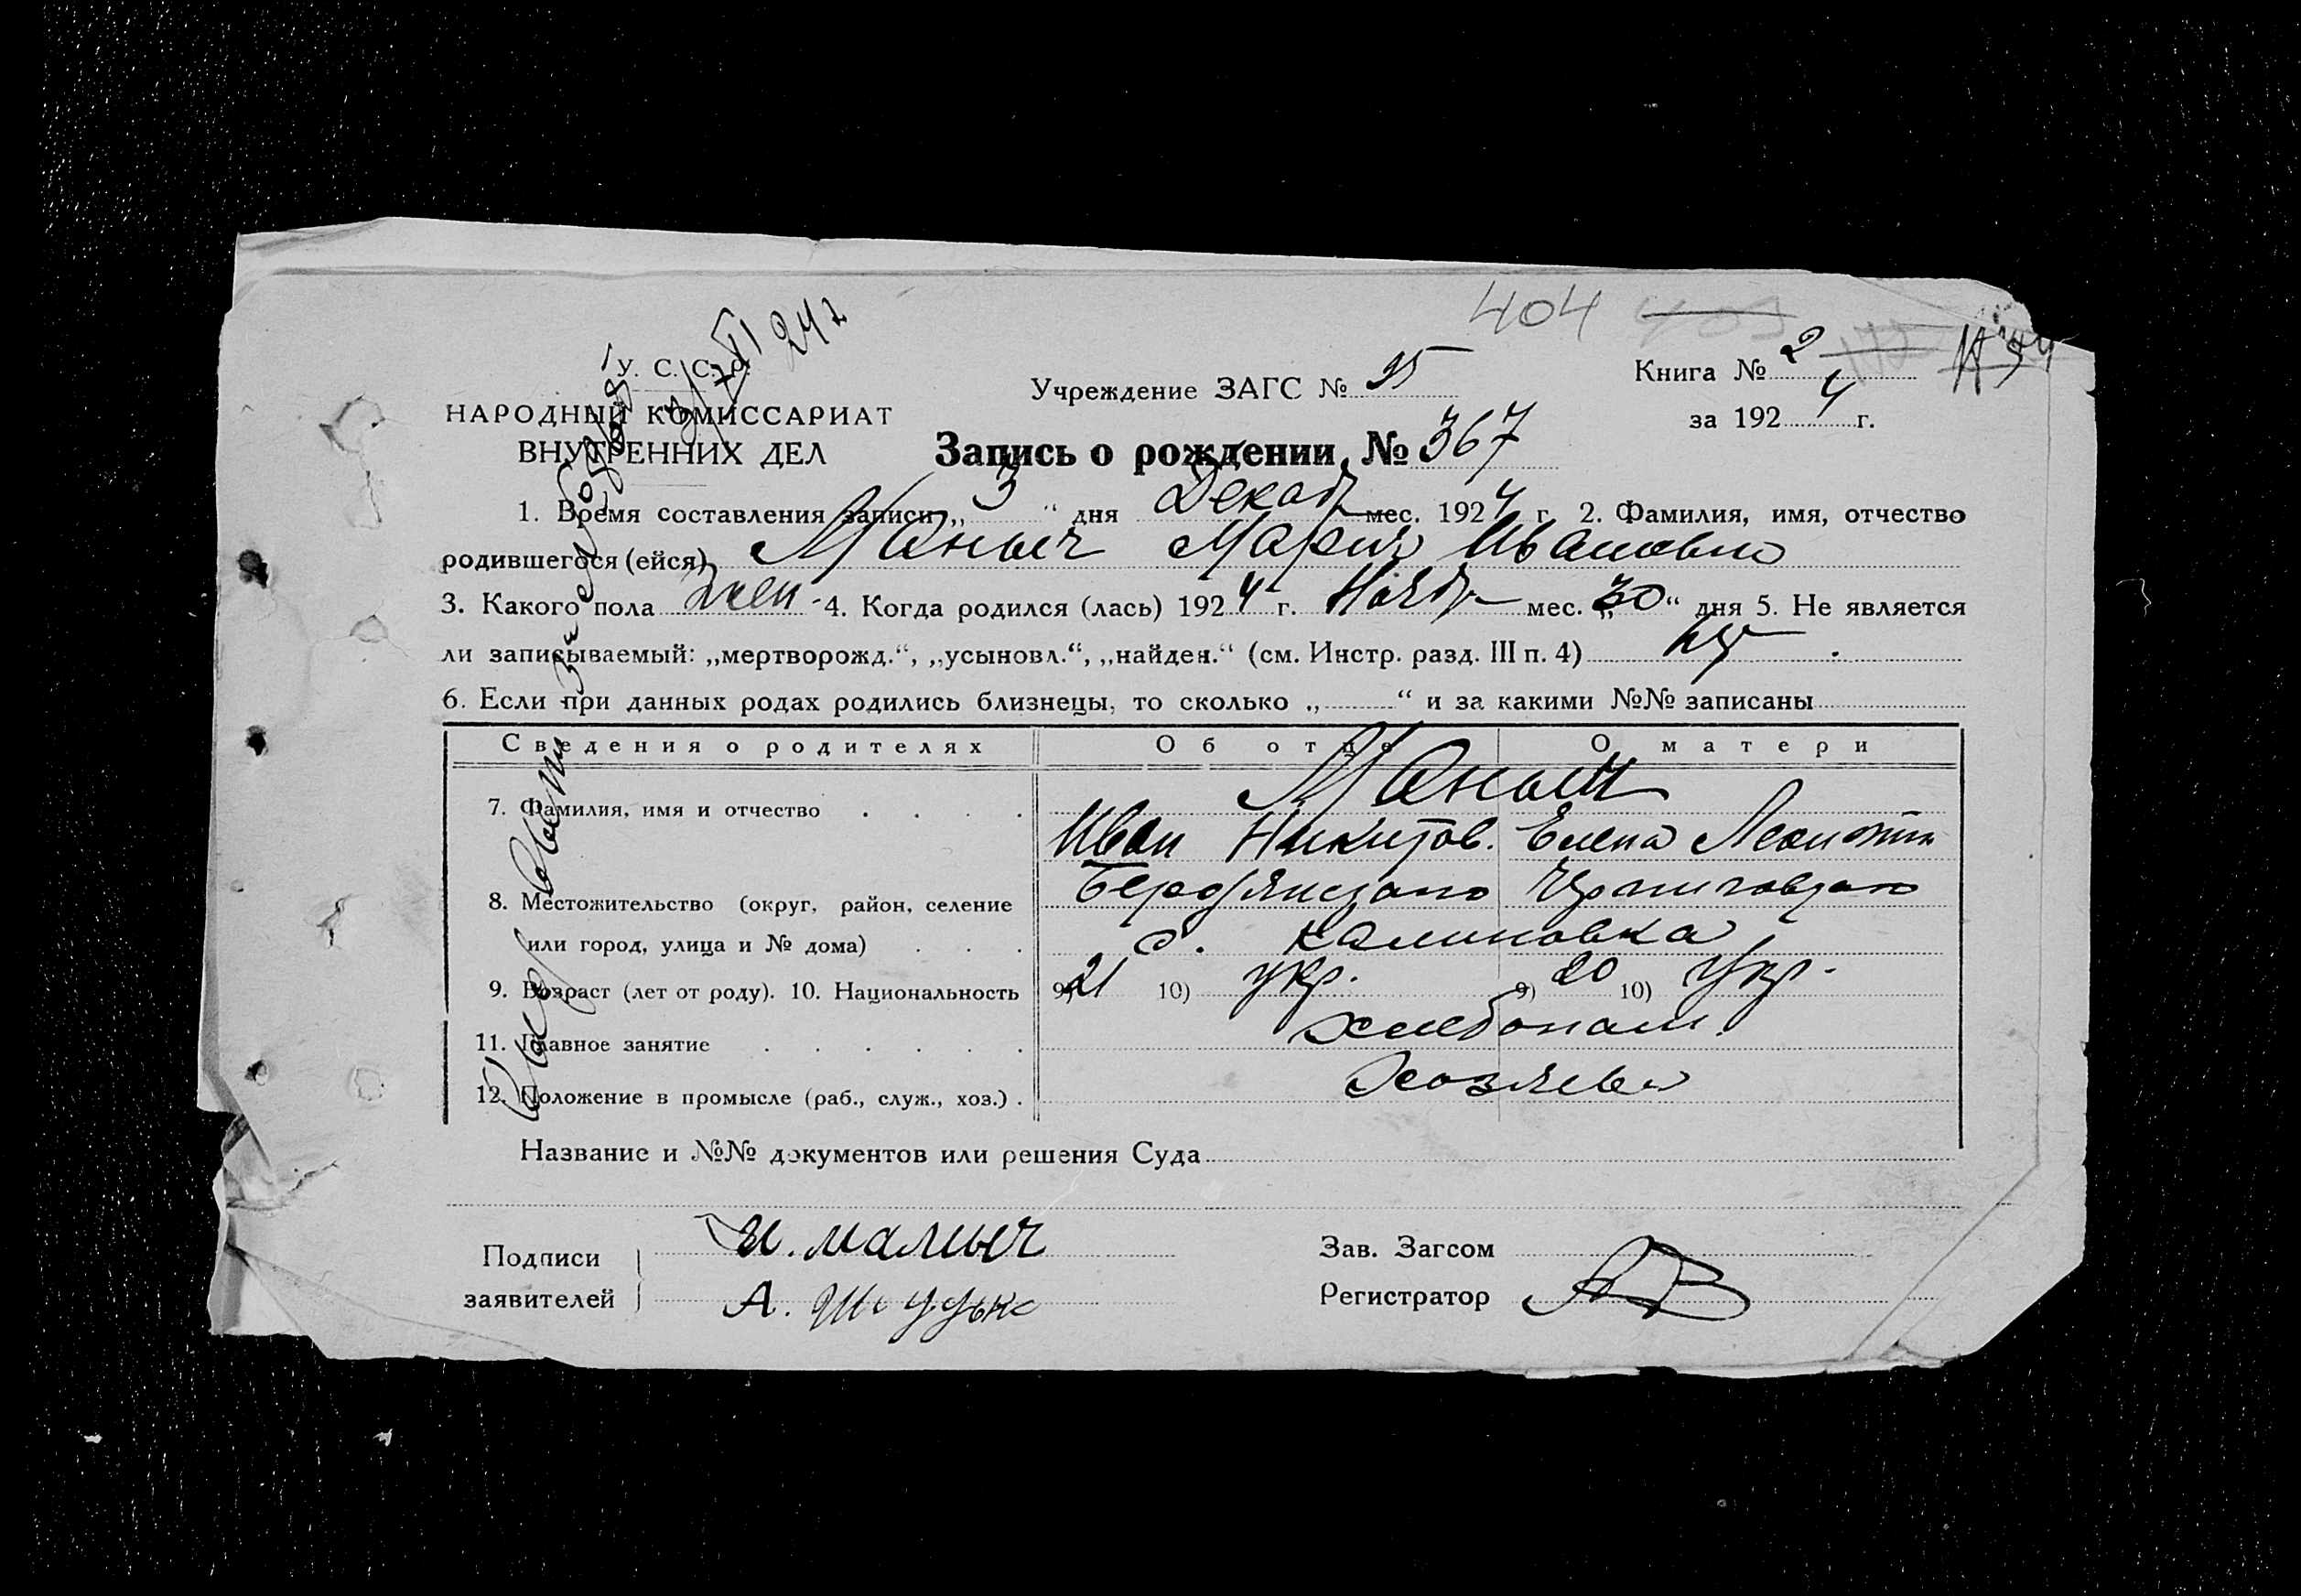 404
У. С. С. Р.
НАРОДНЫЙ КОМИССАРИАТ
ВНУТРЕННИХ ДЕЛ
Учреждение ЗАГС № 95
Книга № 2
за 1924 г.
Запись о рождении № 367
1. Время составления записи „3“ дня Декаб мес. 1924 г. 2. Фамилия, имя, отчество
родившегося (ейся) Маныч Мария Ивановна
3. Какого пола жен. 4. Когда родился (лась) 1924 г. Нояб мес. „30“ дня 5. Не является
ли записываемый: „мертворожд.“, „усыновл.“, „найден.“ (см. Инстр. разд. III п. 4) нет
6. Если при данных родах родились близнецы, то сколько „ “ и за какими №№ записаны
Сведения о родителях Об отце О матери
Маныч
7. Фамилия, имя и отчество
Иван Никитов. Елена Леонтин
8. Местожительство (округ, район, селение
или город, улица и № дома)
с. Калиновка
9. Возраст (лет от роду). 10. Национальность 9) 21 10) укр. 9) 20 10) Укр.
11. Главное занятие хлебопаш.
12. Положение в промысле (раб., служ., хоз.) Хозяева
Название и №№ документов или решения Суда
Подписи
заявителей
И. Маныч
А.
Зав. Загсом
Регистратор